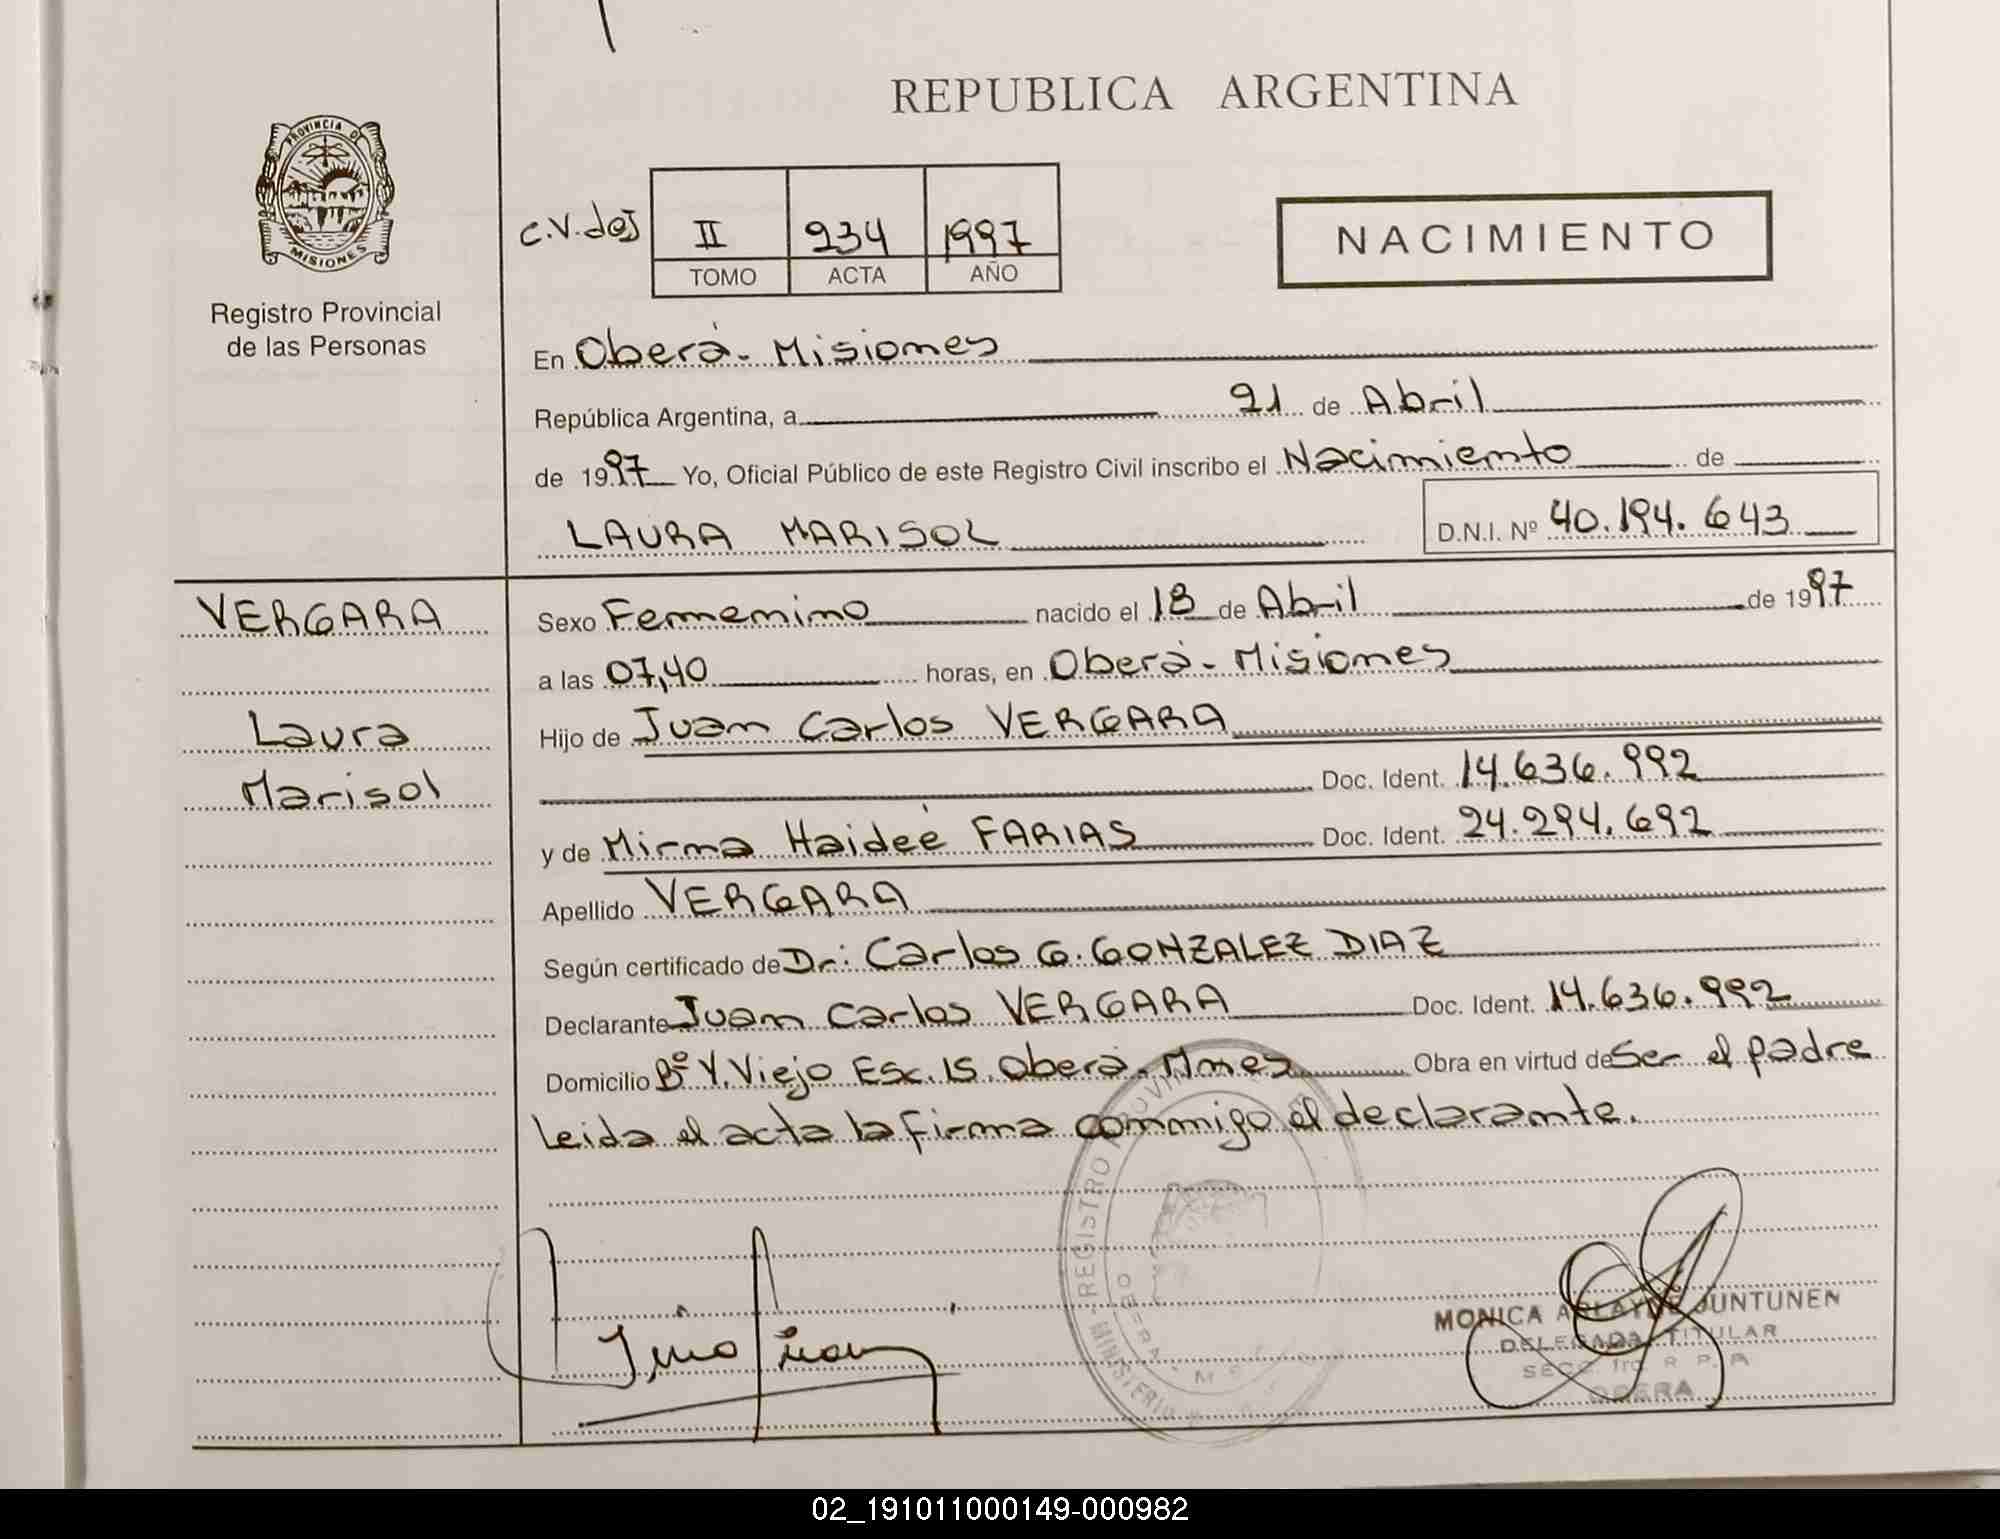 REPUBLICA ARGENTINA
PROVINCIA DE
MISIONES
Registro Provincial
de las Personas
C.V.de
II 234 1997
TOMO ACTA AÑO
NACIMIENTO
En Oberá - Misiones
República Argentina, a 21 de Abril
de 1997 Yo, Oficial Público de este Registro Civil inscribo el Nacimiento de
LAURA MARISOL D.N.I. Nº 40.194.643
VERGARA
Laura
Marisol
Sexo Femenino nacido el 18 de Abril de 1997
a las 07,40 horas, en Oberá - Misiones
Hijo de Juan Carlos VERGARA
Doc. Ident. 14.636.992
y de Mirna Haideé FARIAS Doc. Ident. 24.294.692
Apellido VERGARA
Según certificado de Dr: Carlos G. GONZALEZ DIAZ
Declarante Juan Carlos VERGARA Doc. Ident. 14.636.992
Domicilio Bº V. Viejo Esc. 15. Oberá - Mnes Obra en virtud de Ser el padre
Leida el acta la firma conmigo el declarante.
REGISTRO PROVIN
MINISTERIO
OBERA
MONICA JUNTUNEN
DELEGADA TITULAR
SECC. 1ra. R. P. P.
OBERA
02_191011000149-000982